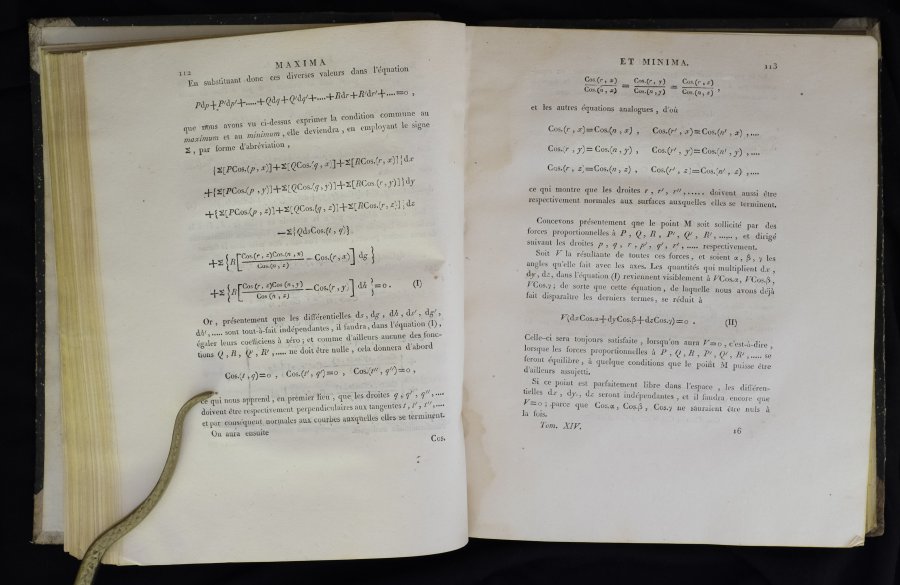 112
MAXIMA
En substituant donc ces diverses valeurs dans l'équation
Pdp+P'dp'+.....+Qdq+Q'dq'+....+Rdr+R'dr'+....=0 ,
que nous avons vu ci-dessus exprimer la condition commune au
maximum et au minimum , elle deviendra , en employant le signe
Σ , par forme d'abréviation ,
{Σ[PCos.(p , x)]+Σ[QCos.(q , x)]+Σ[RCos.(r, x)]}dx
+{Σ[PCos.(p , y)]+Σ[QCos.(q , y)]+Σ[RCos.(r, y)]}dy
+{Σ[PCos.(p , z)]+Σ[QCos.(q , z)]+Σ[RCos.(r, z)]}dz
—Σ{QdsCos.(t , q)}
+Σ{R[Cos.(r, z)Cos.(n, x)/Cos.(n, z) —Cos.(r, x)] dg }
+Σ{R[Cos.(r, z)Cos.(n, y)/Cos.(n, z) —Cos.(r, y)] dh }=0 . (I)
Or , présentement que les différentielles ds , dg , dh , ds' , dg' ,
dh' ,..... sont tout-à-fait indépendantes , il faudra, dans l'équation (I) ,
égaler leurs coefficiens à zéro ; et comme d'ailleurs aucune des fonc-
tions Q , R , Q' , R' ,..... ne doit être nulle , cela donnera d'abord
Cos.(t , q)=0 , Cos.(t' , q')=0 , Cos.(t'' , q'')=0 ,
ce qui nous apprend , en premier lieu , que les droites q , q' , q'' ,....
doivent être respectivement perpendiculaires aux tangentes t , t' , t'' ,....
et par conséquent normales aux courbes auxquelles elles se terminent.
On aura ensuite
Cos.
ET MINIMA.
113
Cos.(r , x)/Cos.(n , x) = Cos.(r , y)/Cos.(n , y) = Cos.(r , z)/Cos.(n , z) ,
et les autres équations analogues , d'où
Cos.(r , x)=Cos.(n , x) , Cos.(r' , x)=Cos.(n' , x) ,....
Cos.(r , y)=Cos.(n , y) , Cos.(r' , y)=Cos.(n' , y) ,....
Cos.(r , z)=Cos.(n , z) , Cos.(r' , z)=Cos.(n' , z) ,....
ce qui montre que les droites r , r' , r'' ,...... doivent aussi être
respectivement normales aux surfaces auxquelles elles se terminent.
Concevons présentement que le point M soit sollicité par des
forces proportionnelles à P , Q , R , P' , Q' , R' , ...... , et dirigé
suivant les droites p , q , r , p' , q' , r' , ..... respectivement.
Soit V la résultante de toutes ces forces , et soient α , β , γ les
angles qu'elle fait avec les axes. Les quantités qui multiplient dx ,
dy , dz , dans l'équation (I) reviennent visiblement à VCos.α , VCos.β ,
VCos.γ ; de sorte que cette équation , de laquelle nous avons déjà
fait disparaître les derniers termes , se réduit à
V(dxCos.α+dyCos.β+dzCos.γ)=0 . (II)
Celle-ci sera toujours satisfaite , lorsqu'on aura V=0 , c'est-à-dire ,
lorsque les forces proportionnelles à P , Q , R , P' , Q' , R' ,..... se
feront équilibre , à quelque conditions que le point M puisse être
d'ailleurs assujetti.
Si ce point est parfaitement libre dans l'espace , les différen-
tielles dx , dy , dz seront indépendantes , et il faudra encore que
V=0 ; parce que Cos.α , Cos.β , Cos.γ ne sauraient être nuls à
la fois.
Tom. XIV.
16